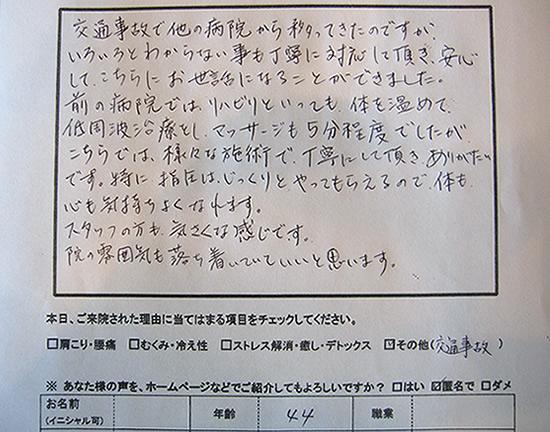 交通事故で他の病院から移ってきたのですが、
いろいろとわからない事も丁寧に対応して頂き、安心
して、こちらにお世話になることができました。
前の病院では、リハビリといっても、体を温めて、
低周波治療とし、マッサージも5分程度でしたが、
こちらでは、様々な施術で、丁寧にして頂き、ありがたい
です。特に指圧は、じっくりとやってもらえるので、体も
心も気持ちよくなれます。
スタッフの方も、気さくな感じです。
院の雰囲気も落ち着いていていいと思います。
本日、ご来院された理由に当てはまる項目をチェックしてください。
□肩こり・腰痛 □むくみ・冷え性 □ストレス解消・癒し・デトックス ☑その他(交通事故)
※ あなた様の声を、ホームページなどでご紹介してもよろしいですか? □はい ☑匿名で □ダメ
お名前 年齢 44 職業
(イニシャル可)